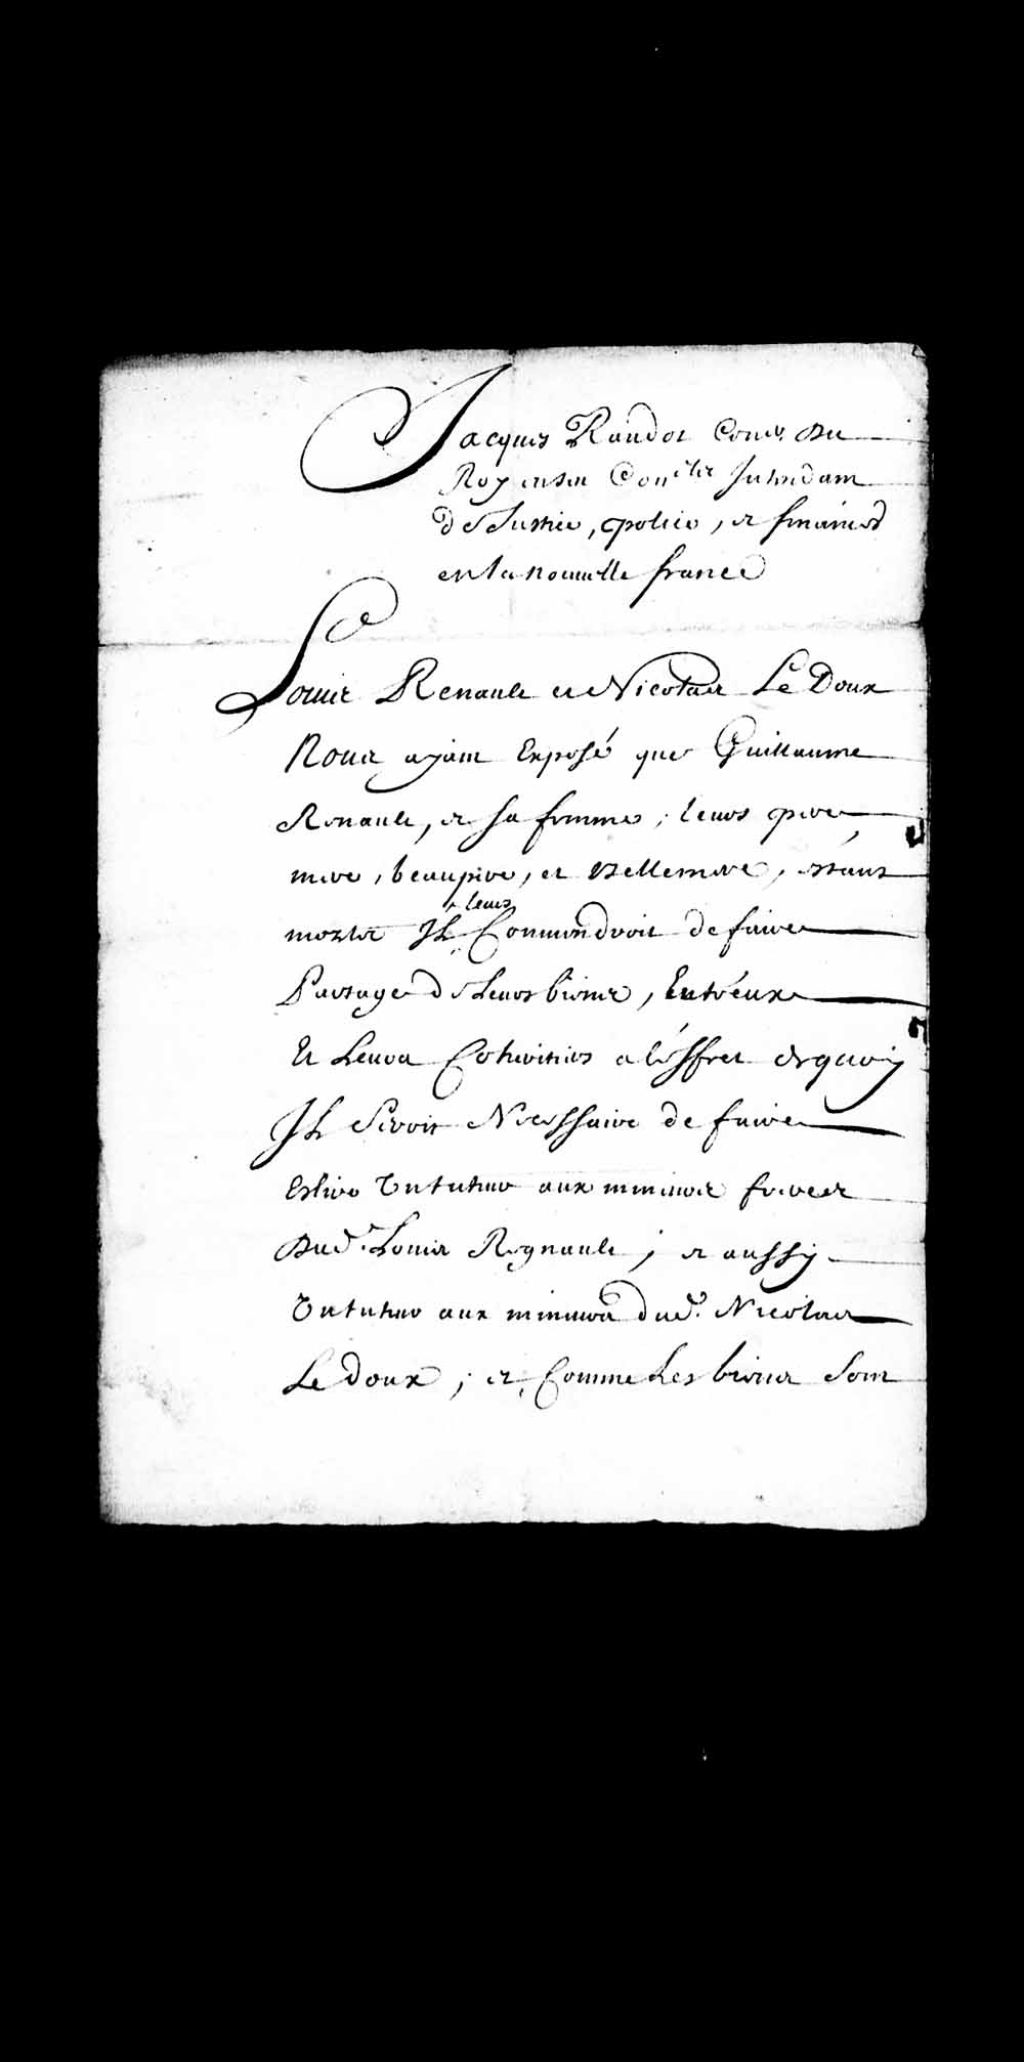 Jacques Raudot Con.er Du
Roy en ses Con.eils Intendant
de Justice, police, et finances
en la nouuelle france
Louis Renault et Nicolas Le Doux
Nous ayant Exposé que Guillaume
Renault, et sa femme, leurs pere
mere, beaupere, et Bellemere, estans
morts Il leur Conuiendroit de faire
Partage de Leurs biens, Entréeux
Et Leurs Coheritiers a léffret dequoy
Il Seroit Necessaire de faire
Eslire Un tuteur aux mineurs freres
Dud. Louis Regnault ; et aussy
Un tuteur aux mineurs dud. Nicolas
Le doux ; et Comme Les biens Sont